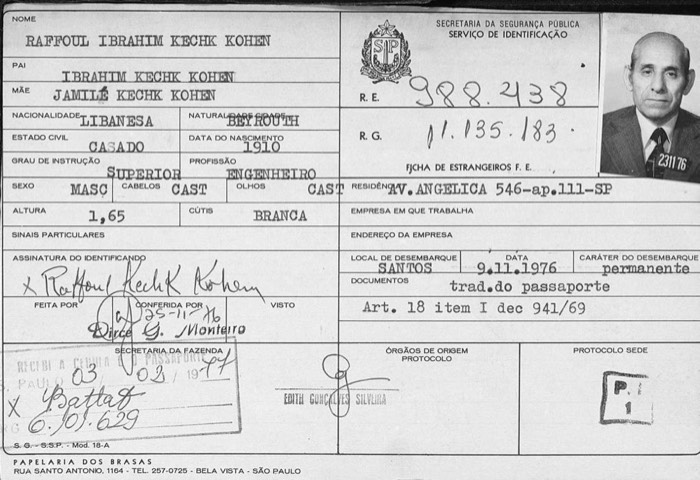 NOME
RAFFOUL IBRAHIM KECHK KOHEN
PAI
IBRAHIM KECHK KOHEN
MÃE
JAMILE KECHK KOHEN
NACIONALIDADE LIBANESA
NATURALIDADE CIDADE BEYROUTH
ESTADO CIVIL CASADO
DATA DO NASCIMENTO 1910
GRAU DE INSTRUÇÃO SUPERIOR
PROFISSÃO ENGENHEIRO
SEXO MASC CABELOS CAST OLHOS CAST
ALTURA 1,65 CÚTIS BRANCA
SINAIS PARTICULARES
ASSINATURA DO IDENTIFICANDO
x Raffoul Kechk Kohen
FEITA POR CONFERIDA POR VISTO
25-11-76
Dirce G. Monteiro
SECRETARIA DA FAZENDA
RECEBI A PASSAPORTE
S. PAULO 03 / 03 / 1977
X Battat
6.101.629
S. G. - S.S.P. - Mod. 18-A
SECRETARIA DA SEGURANÇA PÚBLICA
SERVIÇO DE IDENTIFICAÇÃO
SP
R. E. 988.438
R. G. 11.135.183
FICHA DE ESTRANGEIROS F. E.
231176
RESIDÊNCIA AV.ANGELICA 546-ap.111-SP
EMPRESA EM QUE TRABALHA
ENDEREÇO DA EMPRESA
LOCAL DE DESEMBARQUE SANTOS
DATA 9.11.1976
CARÁTER DO DESEMBARQUE permanente
DOCUMENTOS trad.do passaporte
Art. 18 item I dec 941/69
EDITH GONÇALVES SILVEIRA
ÓRGÃOS DE ORIGEM
PROTOCOLO
PROTOCOLO SEDE
P.
1
PAPELARIA DOS BRASAS
RUA SANTO ANTONIO, 1164 - TEL. 257-0725 - BELA VISTA - SÃO PAULO